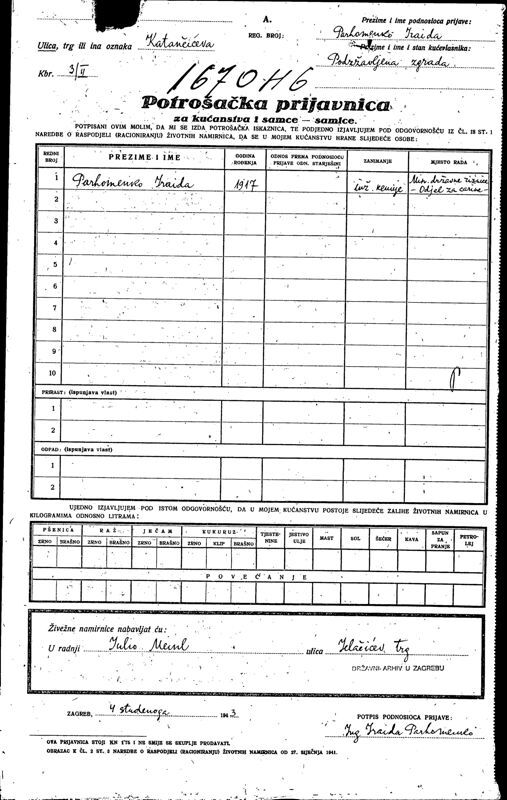 A.
Prezime i ime podnosioca prijave:
REG. BROJ:
Parhomenko Iraida
Ulica, trg ili ina oznaka Katančićeva
Prezime i ime i stan kućevlasnika:
Podržavljena zgrada
Kbr. 3/II
167046
Potrošačka prijavnica
za kućanstva i samce — samice.
POTPISANI OVIM MOLIM, DA MI SE IZDA POTROŠAČKA ISKAZNICA, TE PODJEDNO IZJAVLJUJEM POD ODGOVORNOŠĆU IZ ČL. 18 ST. 1
NAREDBE O RASPODJELI (RACIONIRANJU) ŽIVOTNIH NAMIRNICA, DA SE U MOJEM KUĆANSTVU HRANE SLIJEDEĆE OSOBE:
REDNI BROJ PREZIME I IME GODINA ROĐENJA ODNOS PREMA PODNOSIOCU PRIJAVE ODN. STARJEŠINI ZANIMANJE MJESTO RADA
1 Parhomenko Iraida 1917 inž. kemije Min. državne riznice - Odjel za carine -
2
3
4
5
6
7
8
9
10
PRIRAST: (ispunjava vlast)
1
2
OTPAD: (ispunjava vlast)
1
2
UJEDNO IZJAVLJUJEM POD ISTOM ODGOVORNOŠĆU, DA U MOJEM KUĆANSTVU POSTOJE SLIJEDEĆE ZALIHE ŽIVOTNIH NAMIRNICA U
KILOGRAMIMA ODNOSNO LITRAMA:
PŠENICA RAŽ JEČAM KUKURUZ TJESTENINE JESTIVO ULJE MAST SOL ŠEĆER KAVA SAPUN ZA PRANJE PETROLEJ
ZRNO BRAŠNO ZRNO BRAŠNO ZRNO BRAŠNO ZRNO KLIP BRAŠNO
POVEĆANJE
Živežne namirnice nabavljat ću:
U radnji Julio Meinl ulica Jelačićev trg
DRŽAVNI ARHIV U ZAGREBU
ZAGREB, 4 studenoga 1943
POTPIS PODNOSIOCA PRIJAVE:
Ing Iraida Parhomenko
OVA PRIJAVNICA STOJI KN 1'75 I NE SMIJE SE SKUPLJE PRODAVATI.
OBRAZAC K ČL. 2 ST. 2 NAREDBE O RASPODJELI (RACIONIRANJU) ŽIVOTNIH NAMIRNICA OD 27. SIJEČNJA 1941.